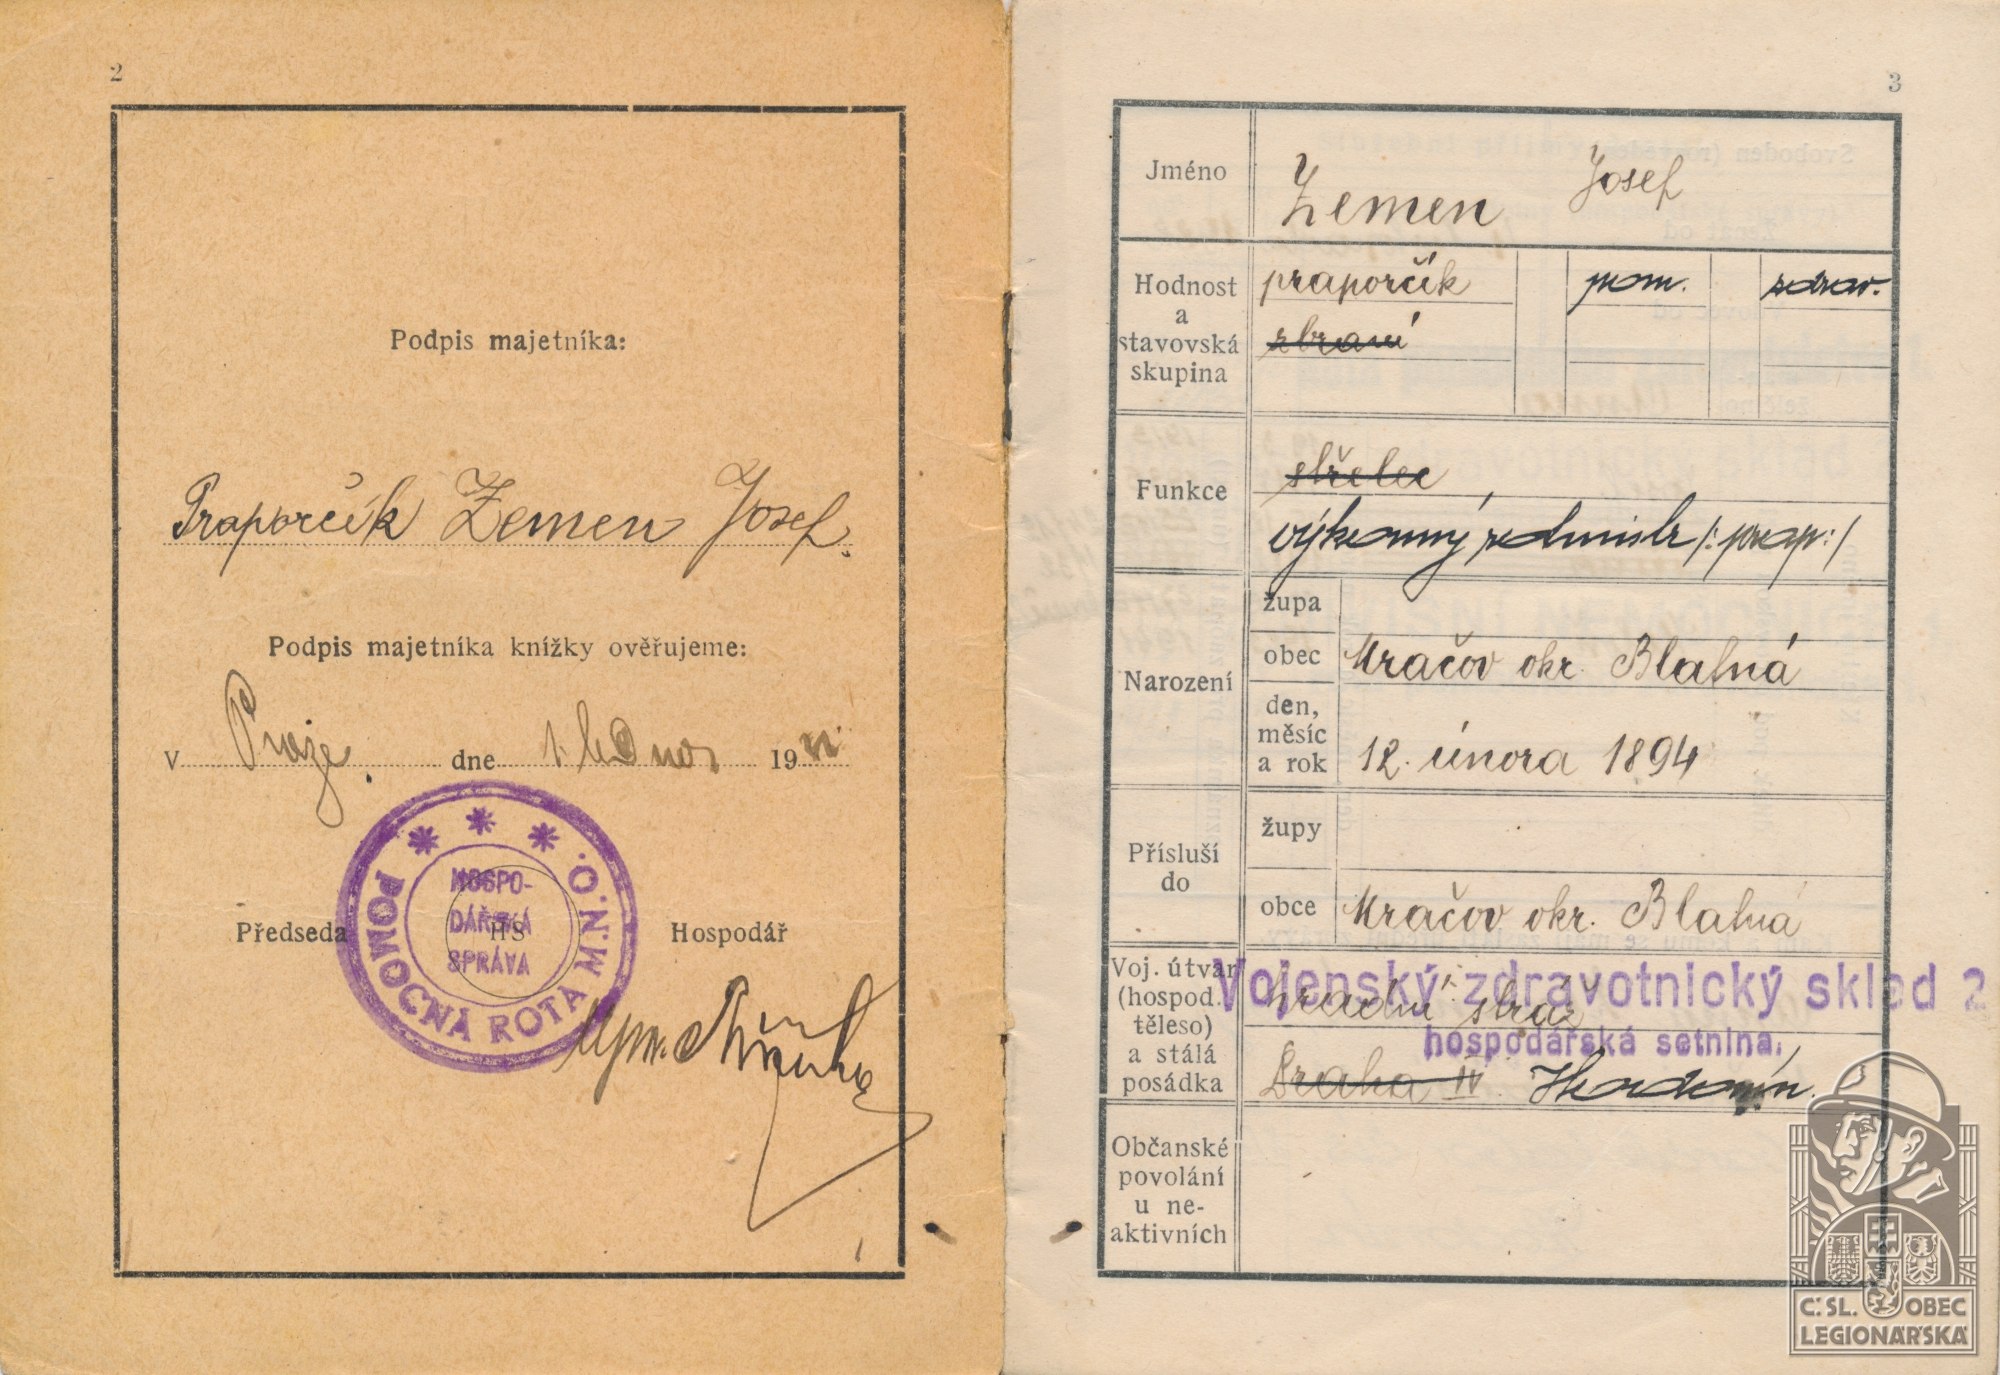 2
Podpis majetníka:
Praporčík Zemen Josef.
Podpis majetníka knížky ověřujeme:
v Praze. dne 1. ledna 19
POMOCNÁ ROTA M.N.O.
HOSPO-
DÁŘSKÁ
SPRÁVA
Předseda HS Hospodář
3
Jméno Zemen Josef
Hodnost a stavovská skupina praporčík pom. zdrav.
zbraní
Funkce střelec
výkonný rotmistr /: prap :/
Narození župa
obec Mračov okr. Blatná
den, měsíc a rok 12. února 1894
Přísluší do župy
obce Mračov okr. Blatná
Voj. útvar (hospod. těleso) a stálá posádka
Vojenský zdravotnický sklad 2
hradní stráž
hospodářská setnina.
Praha IV.
Občanské povolání u ne-aktivních
Č. SL. OBEC
LEGIONÁŘSKÁ